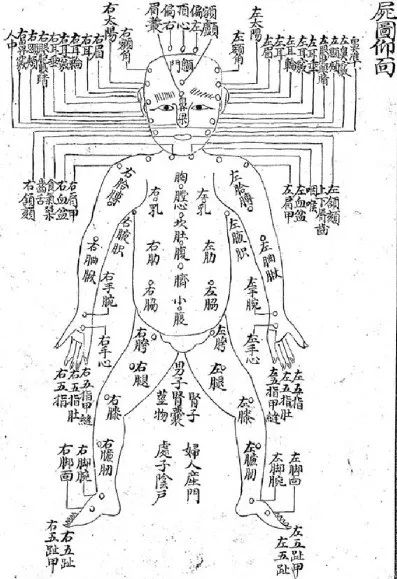 屍圖仰面
左太陽
左額角
額顱
偏左
頂心
偏右
眉叢
右額角
右太陽
左眉
左耳
左耳輪
左耳垂
右眉
右耳
右耳輪
右耳垂
右耳竅
人中
顖門
鼻梁
左頷頦
咽喉
左血盆
左肩甲
右肩甲
右血盆
食氣顙
右頷頦
左肐膊
右肐膊
胸
左乳
心
右乳
左腋胑
右腋胑
左肋
肚腹
右肋
左胳肘
右胳肘
左脇
臍
右脇
小腹
左手腕
右手腕
左手心
右手心
左胯
右胯
左五指肚
左五指甲縫
右五指甲縫
右五指肚
右五指
左腿
右腿
腎子
男子腎囊
莖物
左膝
右膝
婦人産門
處子陰戶
左臁肕
右臁肕
左脚面
左脚腕
右脚腕
右脚面
左五趾甲
左五趾
右五趾
右五趾甲